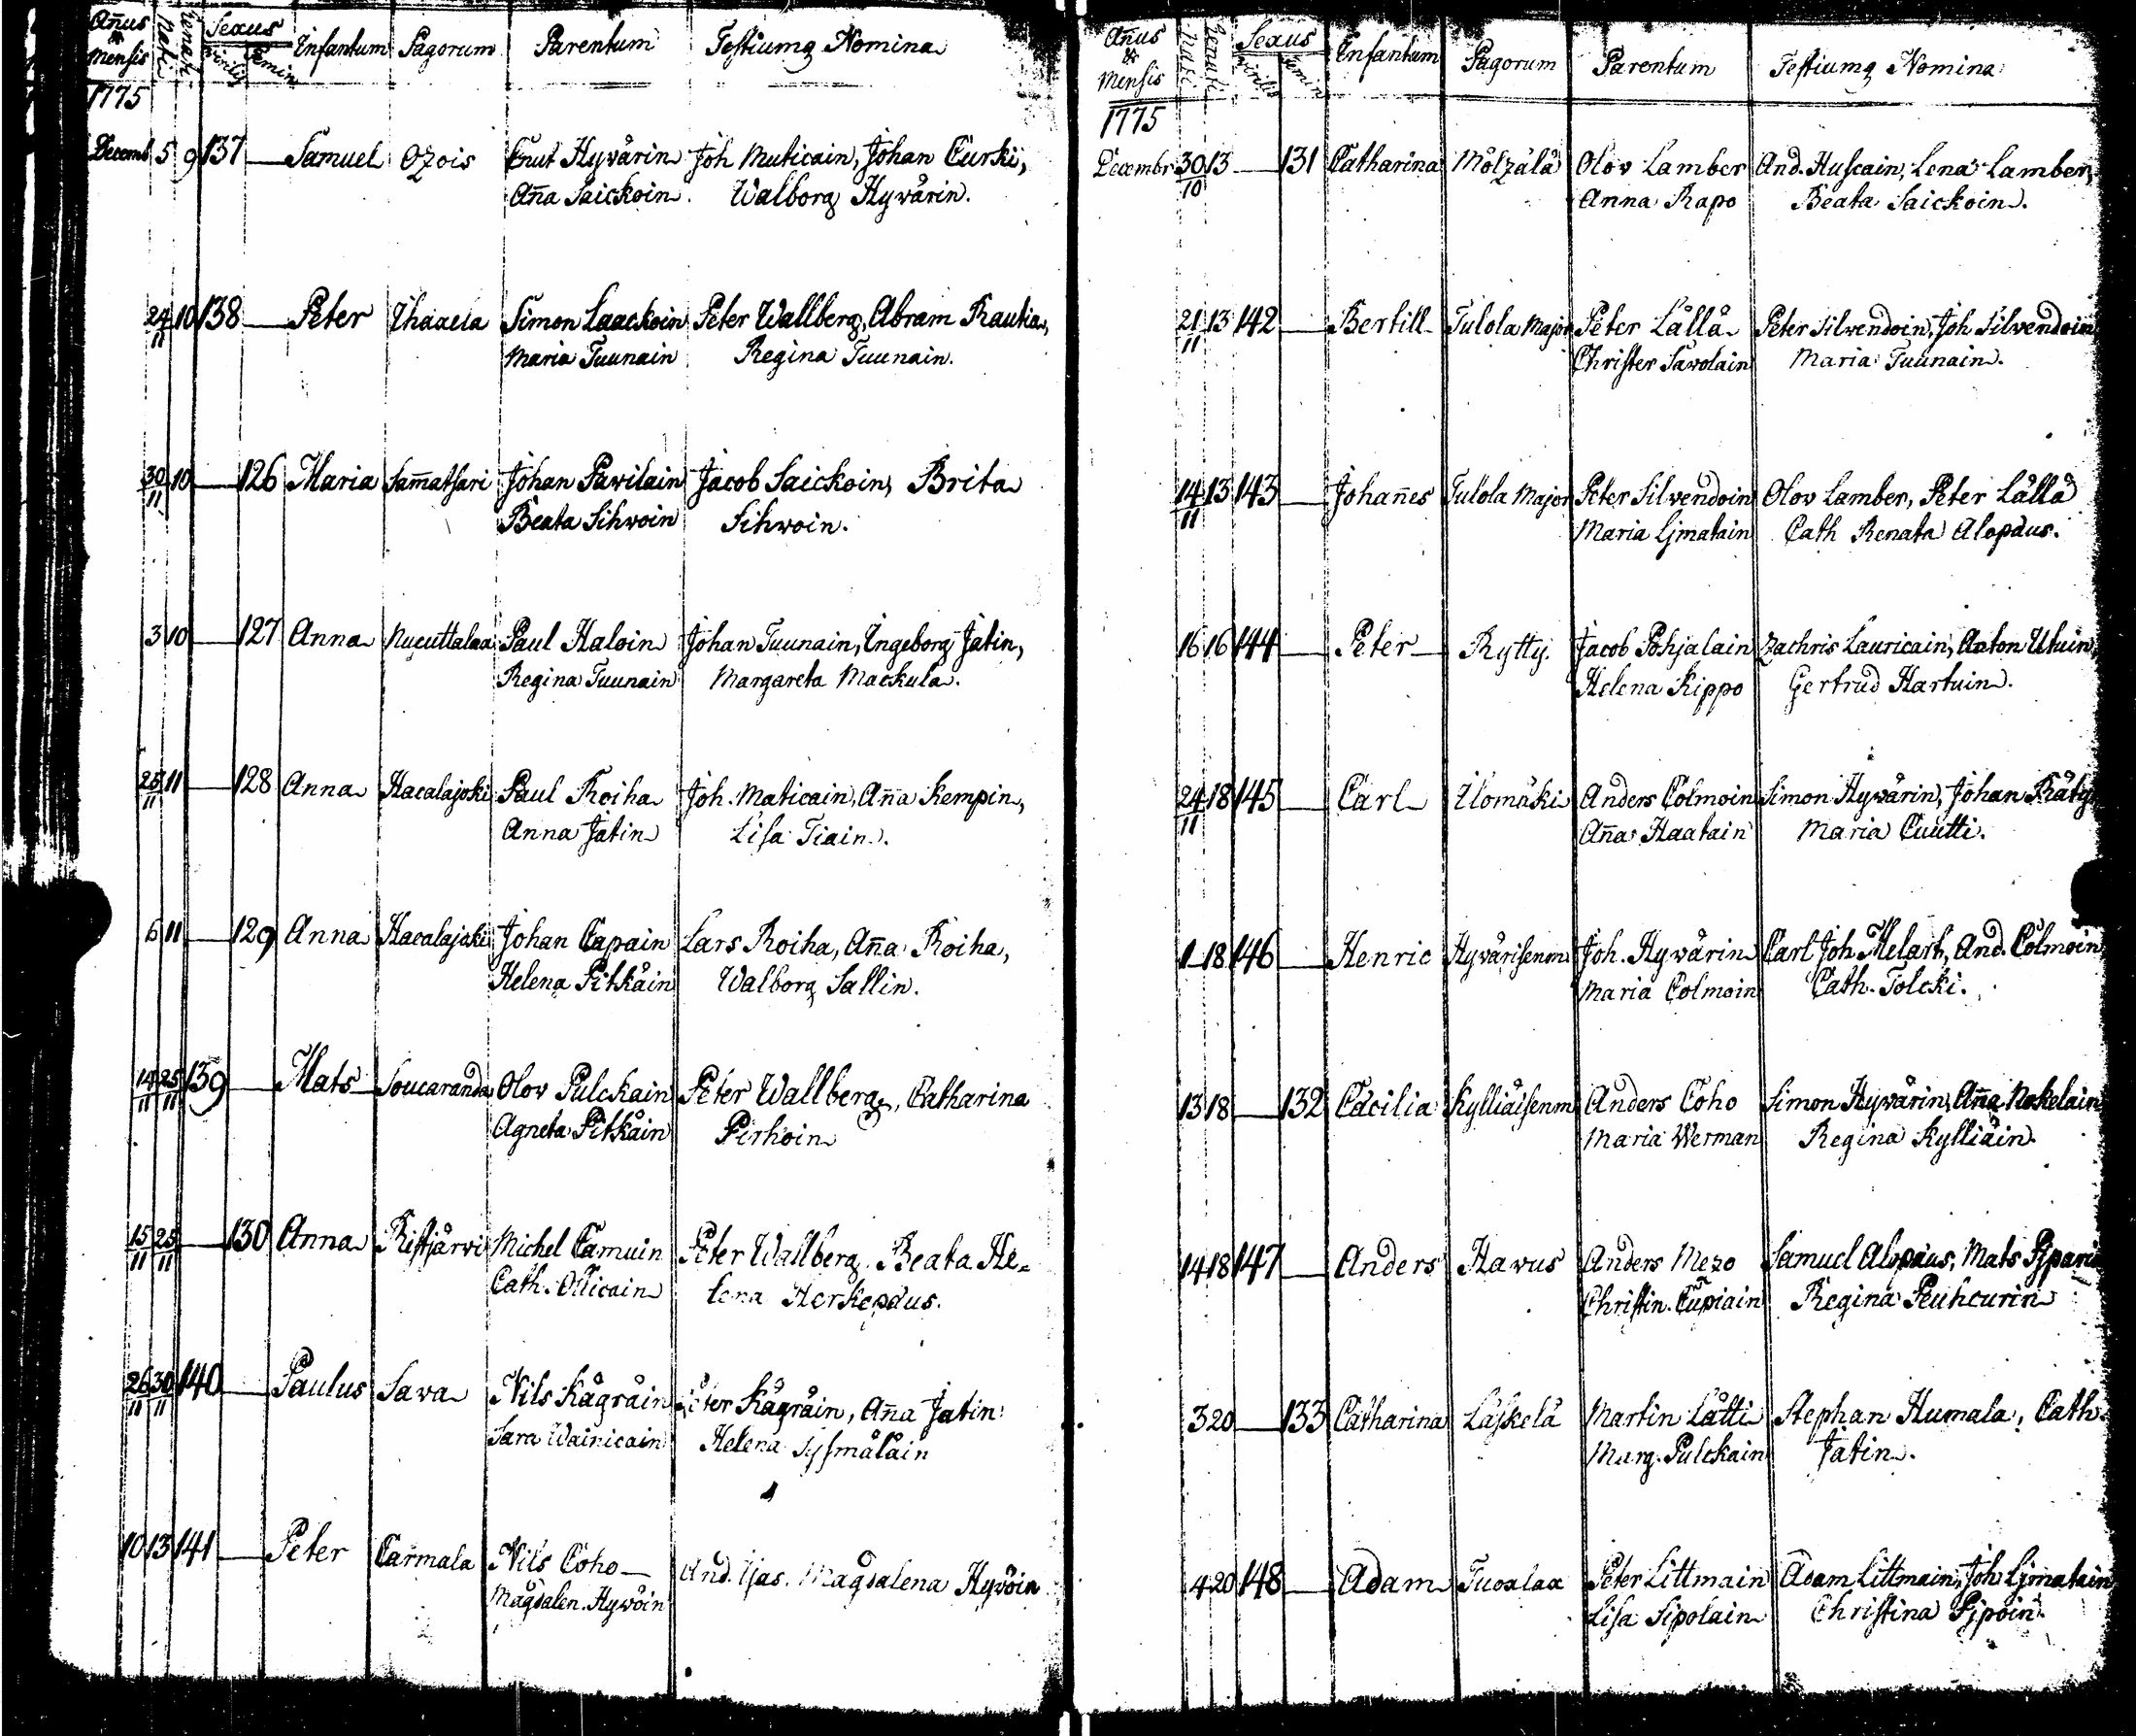 Añus & Mensis Nati Renati Sexus Virilis Femin Infantum Pagorum Parentum Testiumq Nomina
1775
Decemb 5 9 137 Samuel Ozois Cnut Hyvärin Joh Muticain, Johan Curki,
Aña Saickoin Walborg Hyvärin.
24/11 10 138 Peter Ihaxela Simon Laackoin Peter Wallberg, Abram Rautia,
Maria Tuunain Regina Tuunain.
30/11 10 126 Maria Sam̄atsari Johan Pawilain Jacob Saickoin, Brita
Beata Sihwoin Sihwoin.
3 10 127 Anna Nucuttalax Paul Haloin Johan Tuunain, Ingeborg Jatin,
Regina Tuunain Margareta Mackula.
25/11 11 128 Anna Hacalajoki Paul Roiha Joh. Maticain, Aña Kempin,
Anna Jatin Lisa Tiain.
6 11 129 Anna Hacalajoki Johan Capain Lars Roiha, Aña Roiha,
Helena Pitkäin Walborg Sallin.
14/11 25/11 139 Mats Soucaranda Olov Pulckain Peter Wallberg, Catharina
Agneta Pitkäin Pirhoin
15/11 25/11 130 Anna Ristjärvi Michel Camuin Peter Wallberg. Beata He=
Cath. Ollicain lena Herkepæus.
26/11 30/11 140 Paulus Sava Nils Kägräin Peter Kägräin, Aña Jatin
Sara Wainicain Helena Sysmäläin
10 13 141 Peter Carmala Nils Coho And. Ijas. Magdalena Hyvöin
Magdalen. Hywöin
Añus & Mensis Nati Renati Sexus Virilis Femin Infantum Pagorum Parentum Testiumq Nomina
1775
Decembr 30/10 13 131 Catharina Mölzälä Olov Lamber And. Huscain, Lena Lamber,
Anna Rapo Beata Saickoin.
21/11 13 142 Bertill Tulola Major Peter Lällä Peter Silvendoin, Joh Silvendoin
Christer Sawolain Maria Tuunain.
14/11 13 143 Johañes Tulola Major Peter Silvendoin Olov Lamber, Peter Lällä
Maria Ijmatain Cath Renata Alopæus.
16 16 144 Peter Rytty. Jacob Pohjalain Zachris Lauricain, Anton Utuin,
Helena Kippo Gertrud Hartuin.
24/11 18 145 Carl Ilomäki Anders Colmoin Simon Hyvärin, Johan Räty
Aña Haatain Maria Cuutti.
1 18 146 Henric Hyvärisenm Joh. Hyvärin Carl Joh Melart, And. Colmoin
Maria Colmoin Cath. Tolcki.
13 18 132 Cäcilia Kylliäisenm Anders Coho Simon Hyvärin, Aña Nokelain
Maria Werman Regina Kylliäin.
14 18 147 Anders Havus Anders Mezo Samuel Alopæus, Mats Pjparin
Christin. Cupiain Regina Peuhcurin
3 20 133 Catharina Läskelä Martin Lätti Stephan Humala, Cath.
Marg. Pulckain Jatin.
4 20 148 Adam Tuoxlax Peter Littmain Adam Littmain, Joh Ijmatain
Lisa Sipolain Christina Pjpoin.